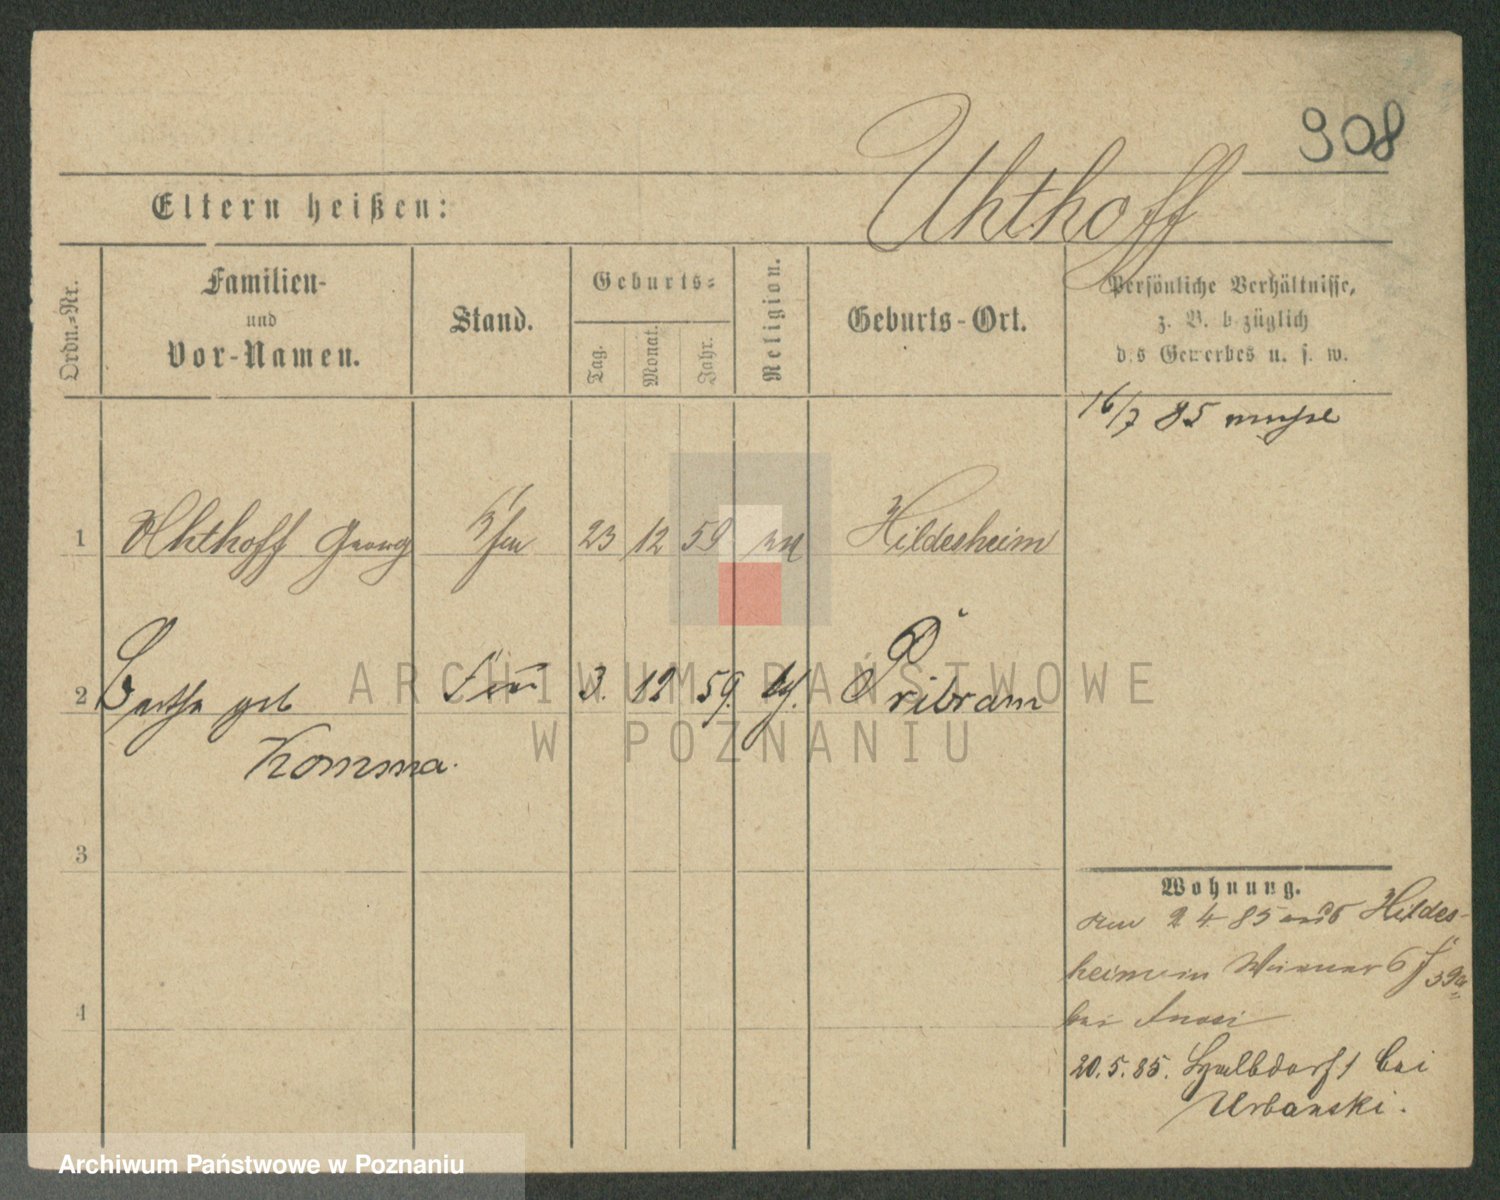 908
Uhthoff
Eltern heißen:
Ordn.-Nr.
Familien-
und
Vor-Namen.
Stand.
Geburts-
Tag.
Monat.
Jahr.
Religion.
Geburts-Ort.
Persönliche Verhältnisse,
z. B. bezüglich
des Gewerbes u. s. w.
16/7 85
1 Uhthoff Georg 23 12 59 Hildesheim
2 Bertha geb 3. 12 59. Pribram
Komma.
3
4
Wohnung.
2 4 85 aus Hildes-
heim in
bei
20.5.85. Halbdorfst bei
Urbanski.
ARCHIWUM PAŃSTWOWE
W POZNANIU
Archiwum Państwowe w Poznaniu